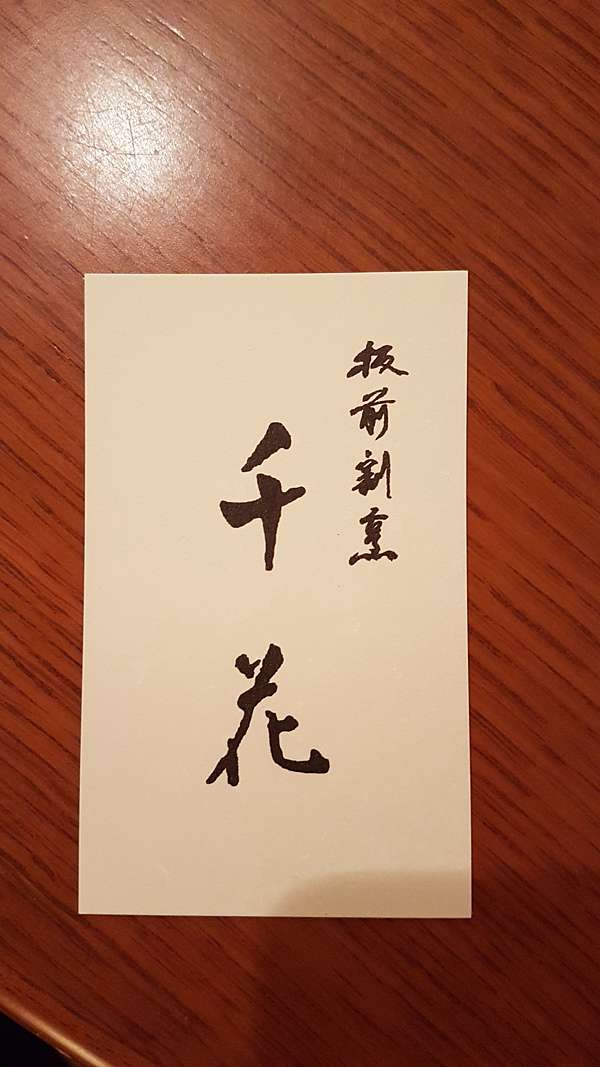 板前割烹
千花